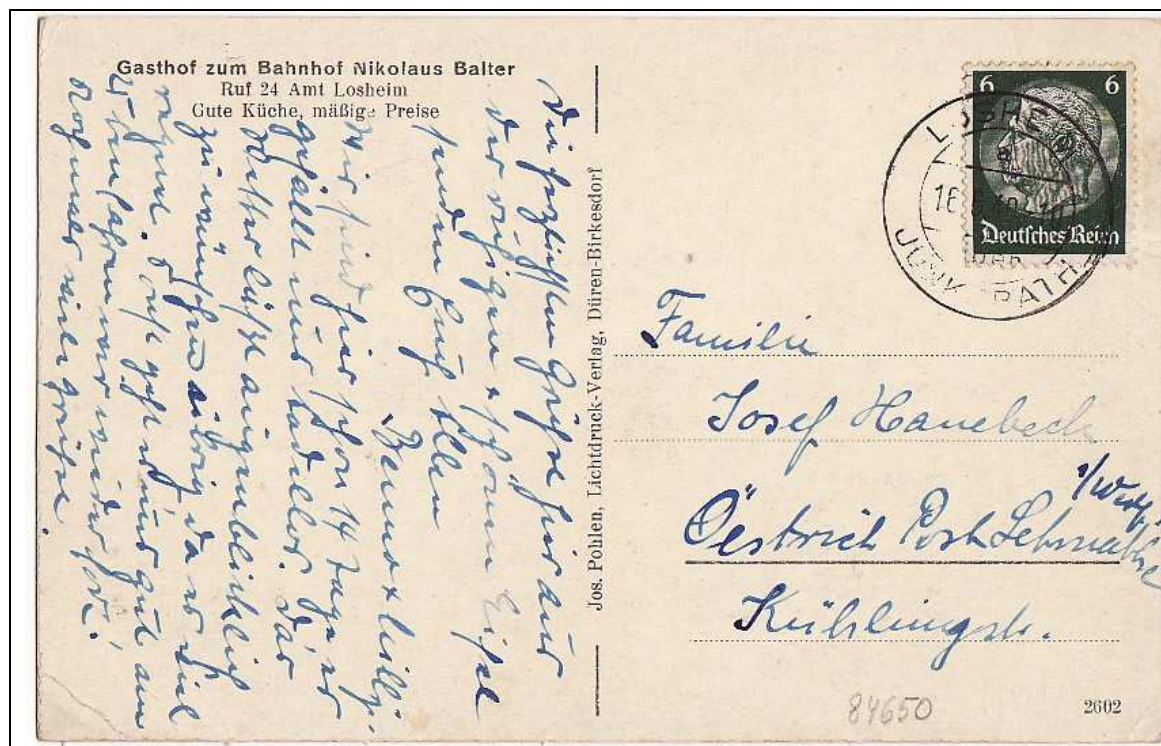 Gasthof zum Bahnhof Nikolaus Balter
Ruf 24 Amt Losheim
Gute Küche, mäßige Preise
Die herzlichsten Grüße hier aus
der ruhigen + schönen Eifel
senden Euch Allen
Benno +
Wir sind hier schon 14 Tage, es
gefällt uns tadellos. Das
Wetter läßt augenblicklich
zu wünschen übrig, da es viel
regnet. Sonst geht es uns gut am
fahren wir wieder fort.
Nochmals viele Grüße.
Jos. Pohlen, Lichtdruck-Verlag, Düren-Birkesdorf
6 6
Deutsches Reich
LOSHEIM
Familie
Josef Hanebeck
i/Westf.
Östrich Post Letmathe
Kühlingstr.
84650
2602